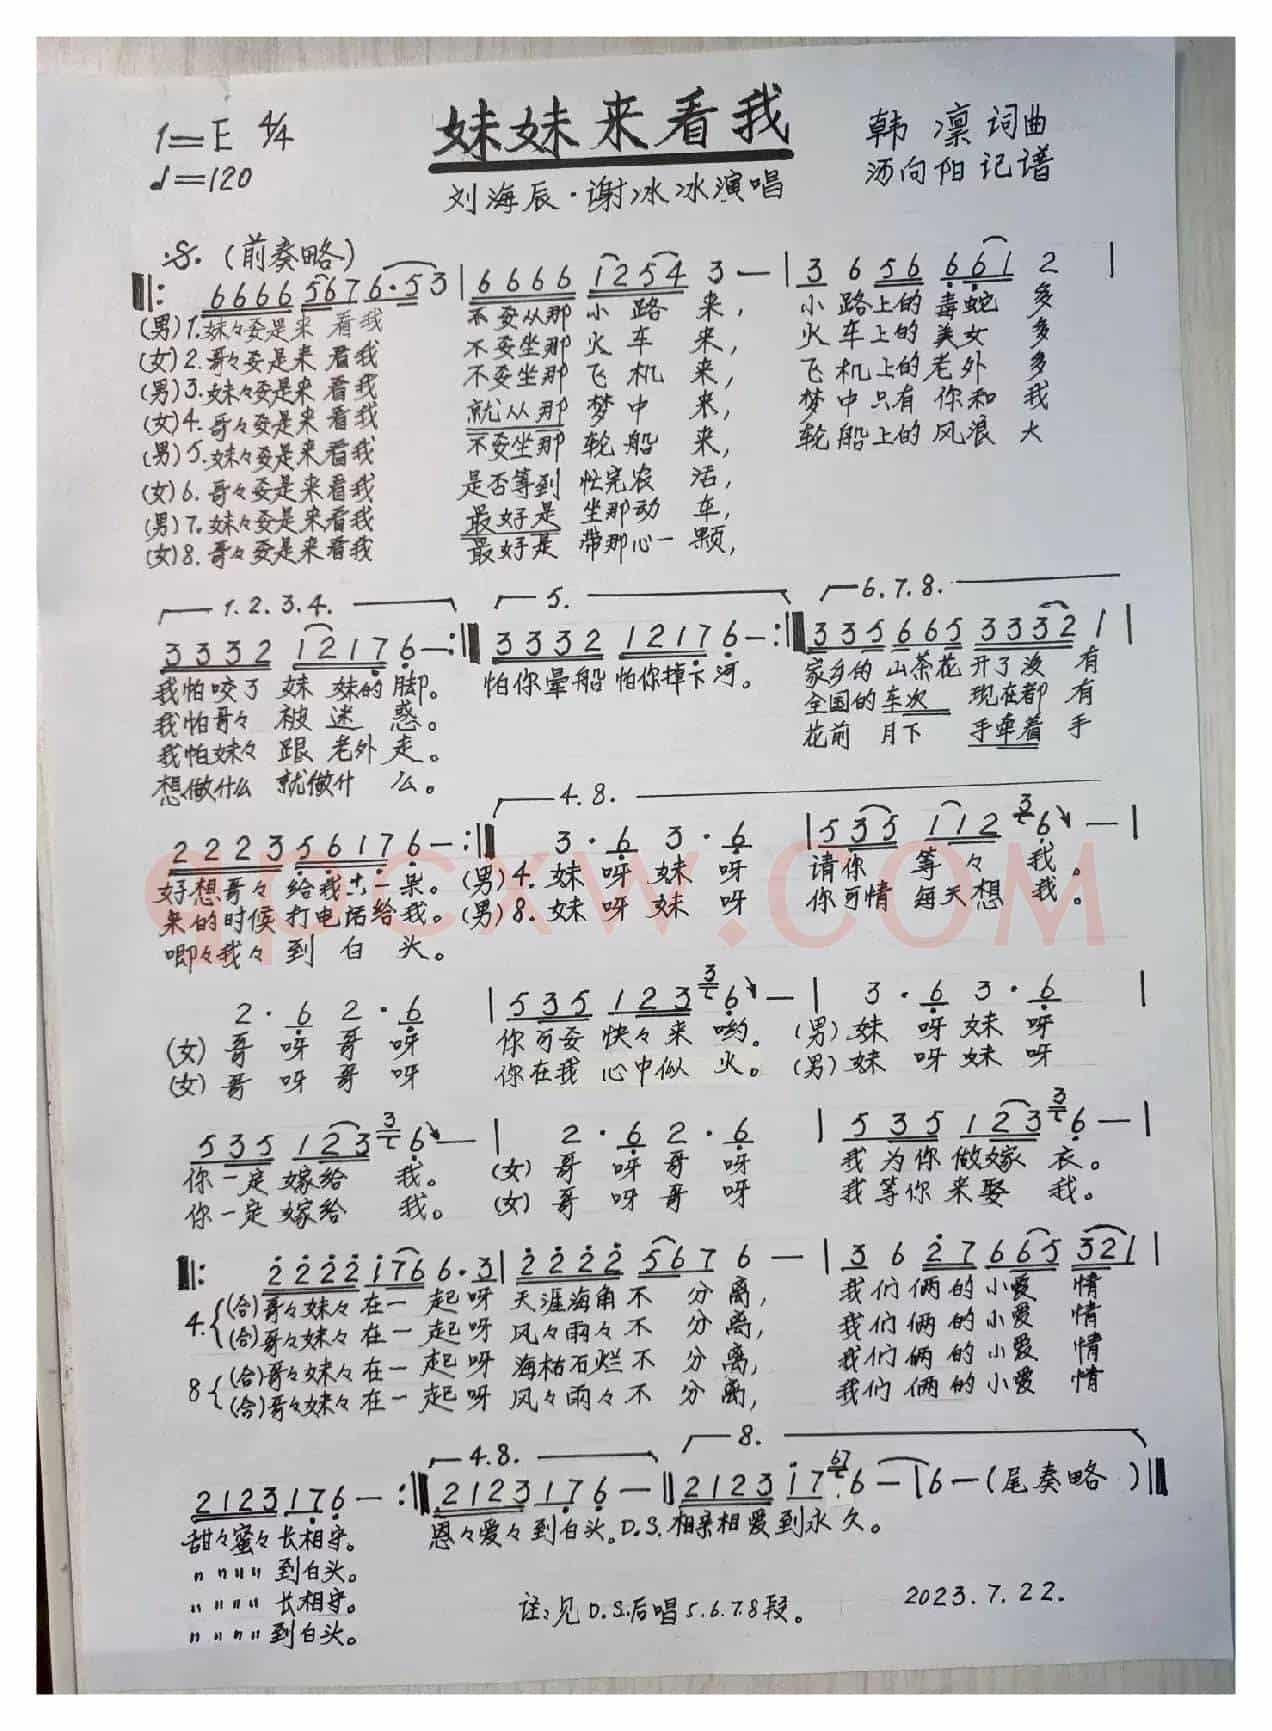 1=E 4/4
妹妹来看我
韩凛词曲
♩=120
刘海辰·谢冰冰演唱
汤向阳记谱
(前奏略)
6666 5676·53 | 6666 1254 3— | 3 6 56 661 2 |
(男)1.妹々要是来看我 不要从那小路来, 小路上的毒蛇多
(女)2.哥々要是来看我 不要坐那火车来, 火车上的美女多
(男)3.妹々要是来看我 不要坐那飞机来, 飞机上的老外多
(女)4.哥々要是来看我 就从那梦中来, 梦中只有你和我
(男)5.妹々要是来看我 不要坐那轮船来, 轮船上的风浪大
(女)6.哥々要是来看我 是否等到忙完农活,
(男)7.妹々要是来看我 最好是坐那动车,
(女)8.哥々要是来看我 最好是带那心一颗,
1.2.3.4. 5. 6.7.8.
3332 1217 6—:‖ 3332 1217 6—:‖ 335 665 3332 1 |
我怕咬了妹妹的脚。 怕你晕船怕你掉下河。 家乡的山茶花开了没有
我怕哥々被迷惑。 全国的车次现在都有
我怕妹々跟老外走。 花前月下手牵着手
想做什么就做什么。
4.8.
2223 5617 6—:‖ 3·6 3·6 | 535 112 6— |
好想哥々给我六一朵。 (男)4.妹呀妹呀 请你等々我。
来的时候打电话给我。 (男)8.妹呀妹呀 你可情每天想我。
唧々我々到白头。
2·6 2·6 | 535 123 6— | 3·6 3·6 |
(女)哥呀哥呀 你可要快々来哟。 (男)妹呀妹呀
(女)哥呀哥呀 你在我心中似火。 (男)妹呀妹呀
535 123 6— | 2·6 2·6 | 535 123 6— |
你一定嫁给我。 (女)哥呀哥呀 我为你做嫁衣。
你一定嫁给我。 (女)哥呀哥呀 我等你来娶我。
‖: 2222 176 6·3 | 2222 567 6— | 3 6 27 665 321 |
4.(合)哥々妹々在一起呀 天涯海角不分离, 我们俩的小爱情
(合)哥々妹々在一起呀 风々雨々不分离, 我们俩的小爱情
8(合)哥々妹々在一起呀 海枯石烂不分离, 我们俩的小爱情
(合)哥々妹々在一起呀 风々雨々不分离, 我们俩的小爱情
4.8. 8.
2123 176—:‖ 2123 176—‖ 2123 17 6—16—(尾奏略)‖
甜々蜜々长相守。 恩々爱々到白头。D.S.相亲相爱到永久。
〃〃〃〃到白头。
〃〃〃〃长相守。
〃〃〃〃到白头。
注:见D.S.后唱5.6.7.8段。
2023.7.22.
qpcxw.COM